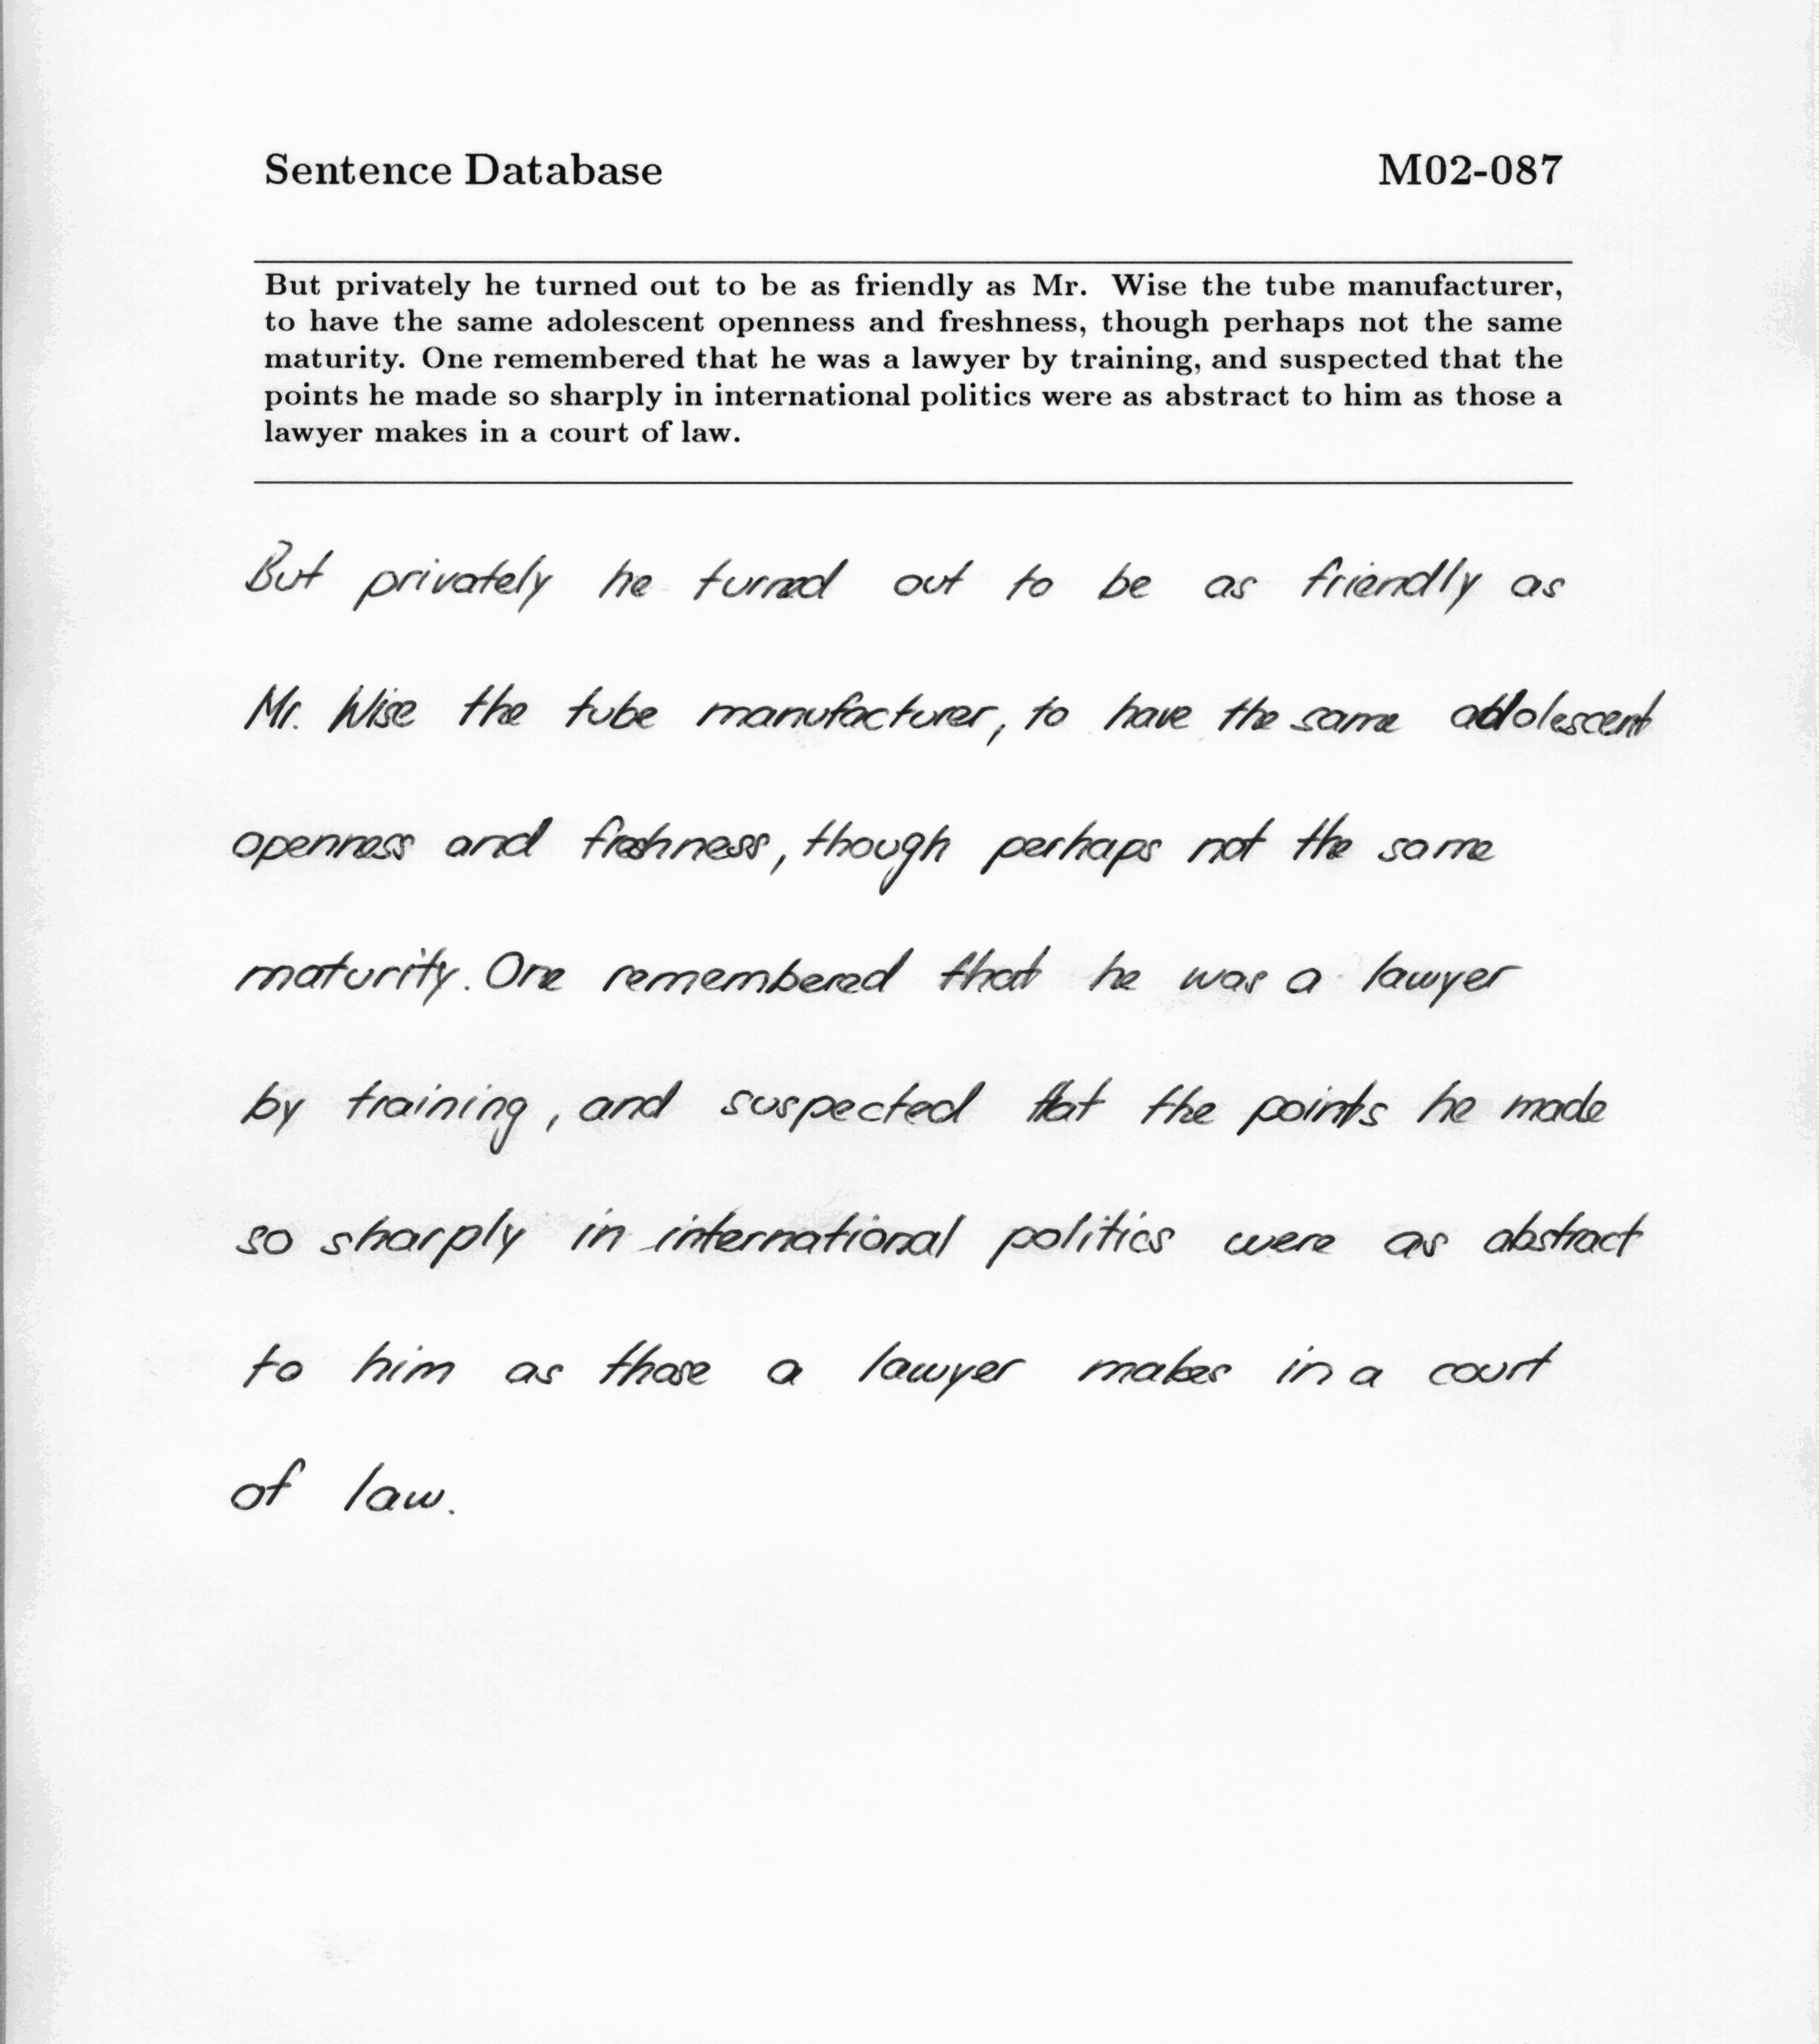 Sentence Database M02-087
But privately he turned out to be as friendly as Mr. Wise the tube manufacturer,
to have the same adolescent openness and freshness, though perhaps not the same
maturity. One remembered that he was a lawyer by training, and suspected that the
points he made so sharply in international politics were as abstract to him as those a
lawyer makes in a court of law.
But privately he turned out to be as friendly as
Mr. Wise the tube manufacturer, to have the same adolescent
openness and freshness, though perhaps not the same
maturity. One remembered that he was a lawyer
by training, and suspected that the points he made
so sharply in international politics were as abstract
to him as those a lawyer makes in a court
of law.